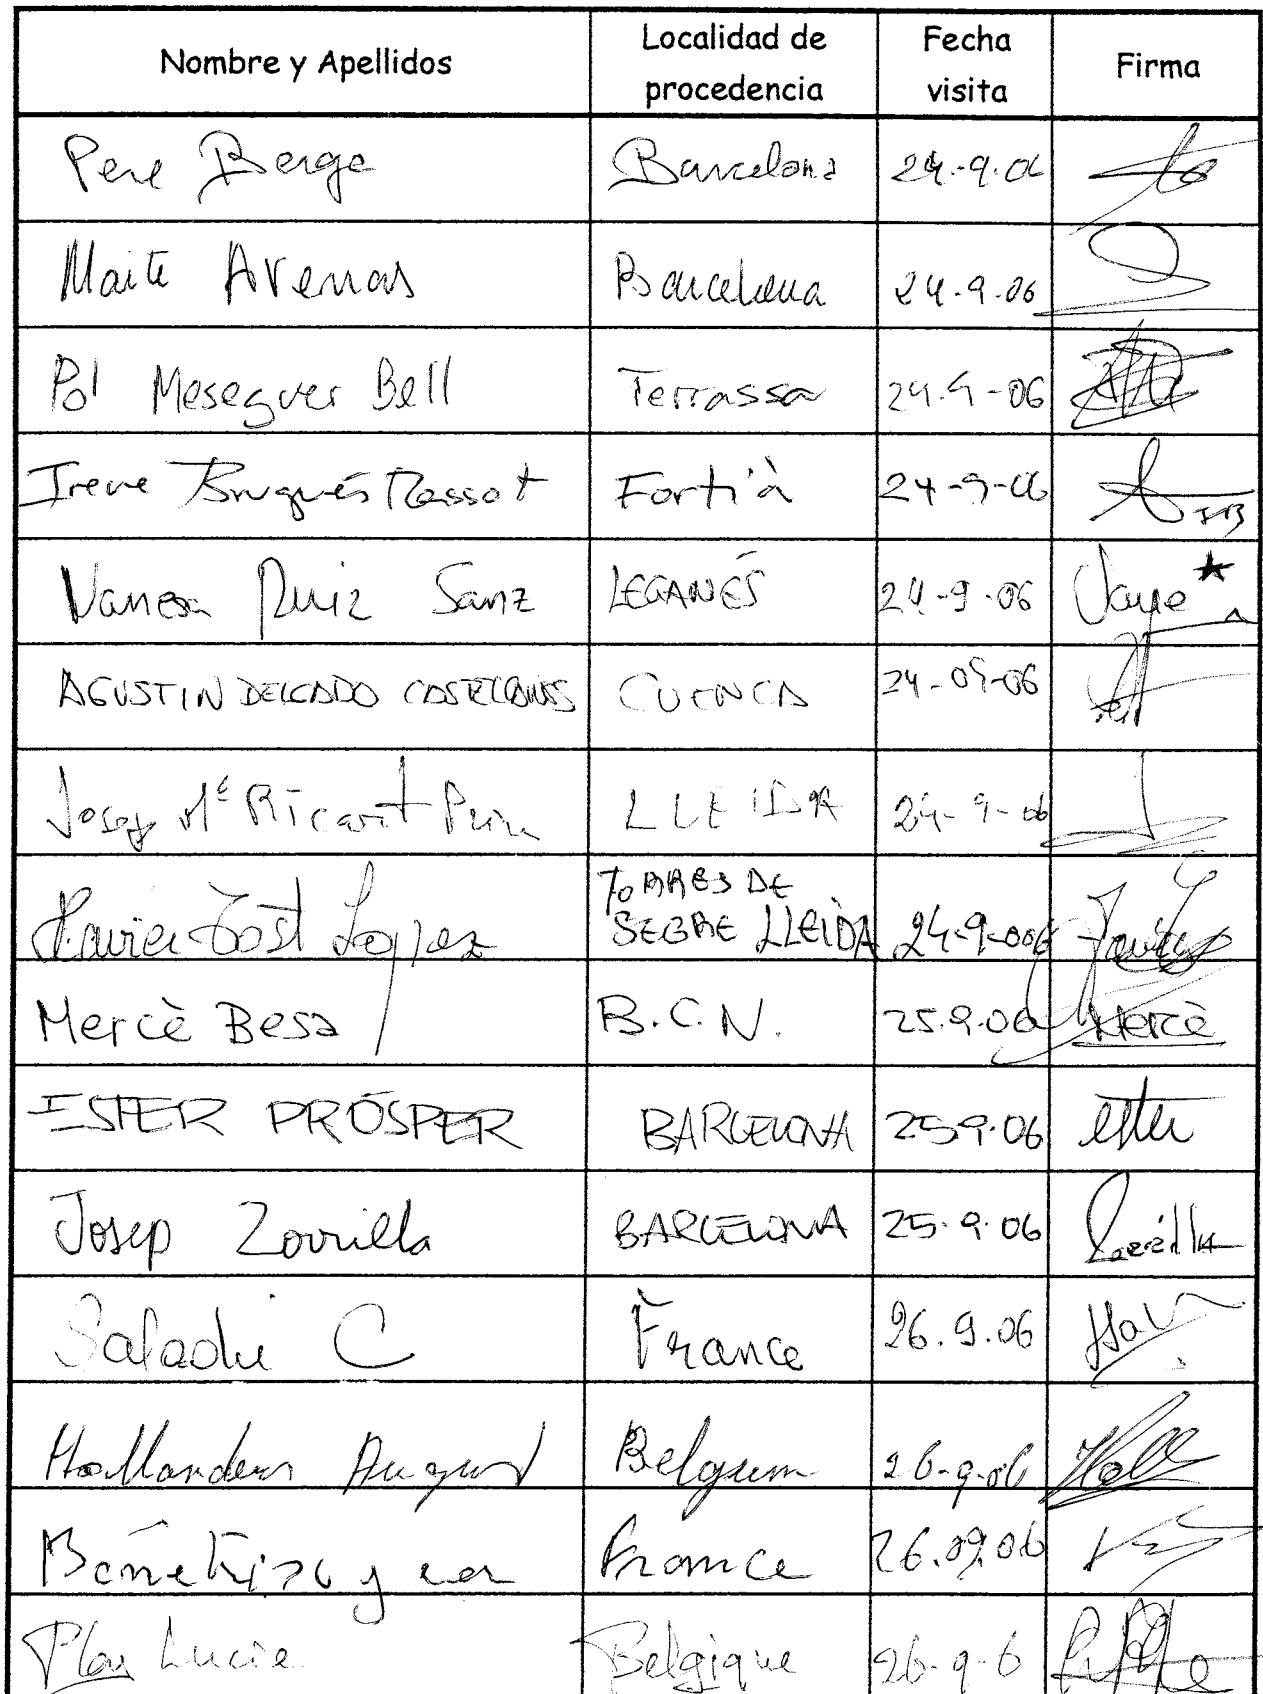 Nombre y Apellidos Localidad de procedencia Fecha visita Firma
Pere Berge Barcelona 24-9-06
Maite Arenas Barcelona 24-9-06
Pol Meseguer Bell Terrassa 24-9-06
Irene Brugués Massot Fortià 24-9-06
Vanesa Ruiz Sanz LEGANÉS 24-9-06
AGUSTIN DELGADO CUENCA 24-09-06
Josep Mª Ricart LLEIDA 24-9-06
Xavier Tost Lopez TORRES DE SEGRE LLEIDA 24-9-006
Mercè Besa B.C.N. 25.9.06 Mercè
ESTER PRÓSPER BARCELONA 25 9.06 ester
Josep Zorrilla BARCELONA 25.9.06 Zorrilla
C France 26.9.06
Hollanders August Belgium 26-9-06 Holl
France 26.09.06
Lucie Belgique 26-9-6